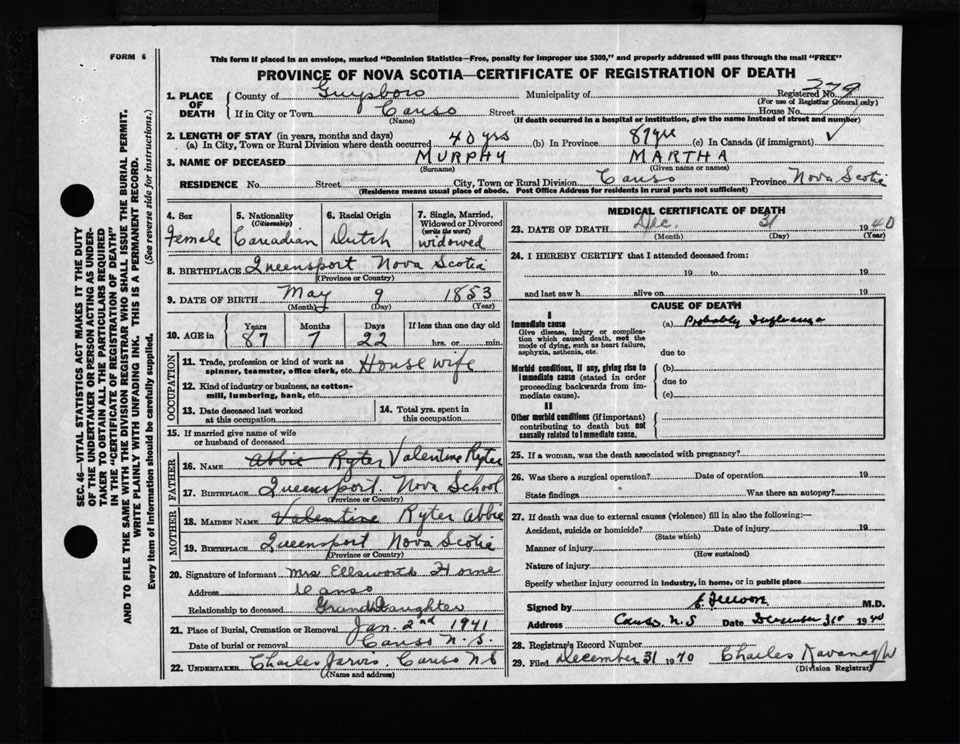 FORM 6
This form if placed in an envelope, marked "Dominion Statistics—Free, penalty for improper use $300," and properly addressed will pass through the mail "FREE"
PROVINCE OF NOVA SCOTIA—CERTIFICATE OF REGISTRATION OF DEATH
SEC. 46—VITAL STATISTICS ACT MAKES IT THE DUTY
OF THE UNDERTAKER OR PERSON ACTING AS UNDER-
TAKER TO OBTAIN ALL THE PARTICULARS REQUIRED
IN THE "CERTIFICATE OF REGISTRATION OF DEATH"
AND TO FILE THE SAME WITH THE DIVISION REGISTRAR WHO SHALL ISSUE THE BURIAL PERMIT.
WRITE PLAINLY WITH UNFADING INK. THIS IS A PERMANENT RECORD.
Every item of information should be carefully supplied. (See reverse side for instructions.)
1. PLACE OF DEATH County of Guysboro Municipality of Registered No. 279
(For use of Registrar General only)
If in City or Town Canso Street House No.
(Name) (If death occurred in a hospital or institution, give the name instead of street and number)
2. LENGTH OF STAY (in years, months and days)
(a) In City, Town or Rural Division where death occurred 40 yrs (b) In Province 87 yrs (c) In Canada (if immigrant)
3. NAME OF DECEASED MURPHY MARTHA
(Surname) (Given name or names)
RESIDENCE No. Street City, Town or Rural Division Canso Province Nova Scotia
(Residence means usual place of abode. Post Office Address for residents in rural parts not sufficient)
4. Sex Female
5. Nationality (Citizenship) Canadian
6. Racial Origin Dutch
7. Single, Married, Widowed or Divorced (write the word) widowed
8. BIRTHPLACE Queensport Nova Scotia
(Province or Country)
9. DATE OF BIRTH May 9 1853
(Month) (Day) (Year)
10. AGE in Years Months Days If less than one day old
87 7 22 hrs. or min.
OCCUPATION
11. Trade, profession or kind of work as spinner, teamster, office clerk, etc. House wife
12. Kind of industry or business, as cotton-mill, lumbering, bank, etc.
13. Date deceased last worked at this occupation
14. Total yrs. spent in this occupation
15. If married give name of wife or husband of deceased
FATHER
16. NAME Abbie Ryter Valentine Ryter
17. BIRTHPLACE Queensport. Nova School
(Province or Country)
MOTHER
18. MAIDEN NAME Valentine Ryter Abbie
19. BIRTHPLACE Queensport Nova Scotia
(Province or Country)
20. Signature of informant Mrs Ellsworth Horne
Address Canso
Relationship to deceased Grand Daughter
21. Place of Burial, Cremation or Removal Jan. 2nd 1941
Date of burial or removal Canso N.S.
22. UNDERTAKER Charles Jarvis. Canso NS
(Name and address)
MEDICAL CERTIFICATE OF DEATH
23. DATE OF DEATH Dec. 31 1940
(Month) (Day) (Year)
24. I HEREBY CERTIFY that I attended deceased from:
19 to 19
and last saw h alive on 19
CAUSE OF DEATH
I
Immediate cause (a) Probably Influenza
Give disease, injury or complica-
tion which caused death, not the
mode of dying, such as heart failure,
asphyxia, asthenia, etc. due to
Morbid conditions, if any, giving rise to (b)
immediate cause (stated in order due to
proceeding backwards from im-
mediate cause). (c)
II
Other morbid conditions (if important)
contributing to death but not
causally related to immediate cause.
25. If a woman, was the death associated with pregnancy?
26. Was there a surgical operation? Date of operation 19
State findings Was there an autopsy?
27. If death was due to external causes (violence) fill in also the following:—
Accident, suicide or homicide? Date of injury 19
(State which)
Manner of injury
(How sustained)
Nature of injury
Specify whether injury occurred in industry, in home, or in public place
Signed by M.D.
Address Canso, N.S Date December 31st 1940
28. Registrar's Record Number
29. Filed December 31 1940 Charles Kavanagh
(Division Registrar)